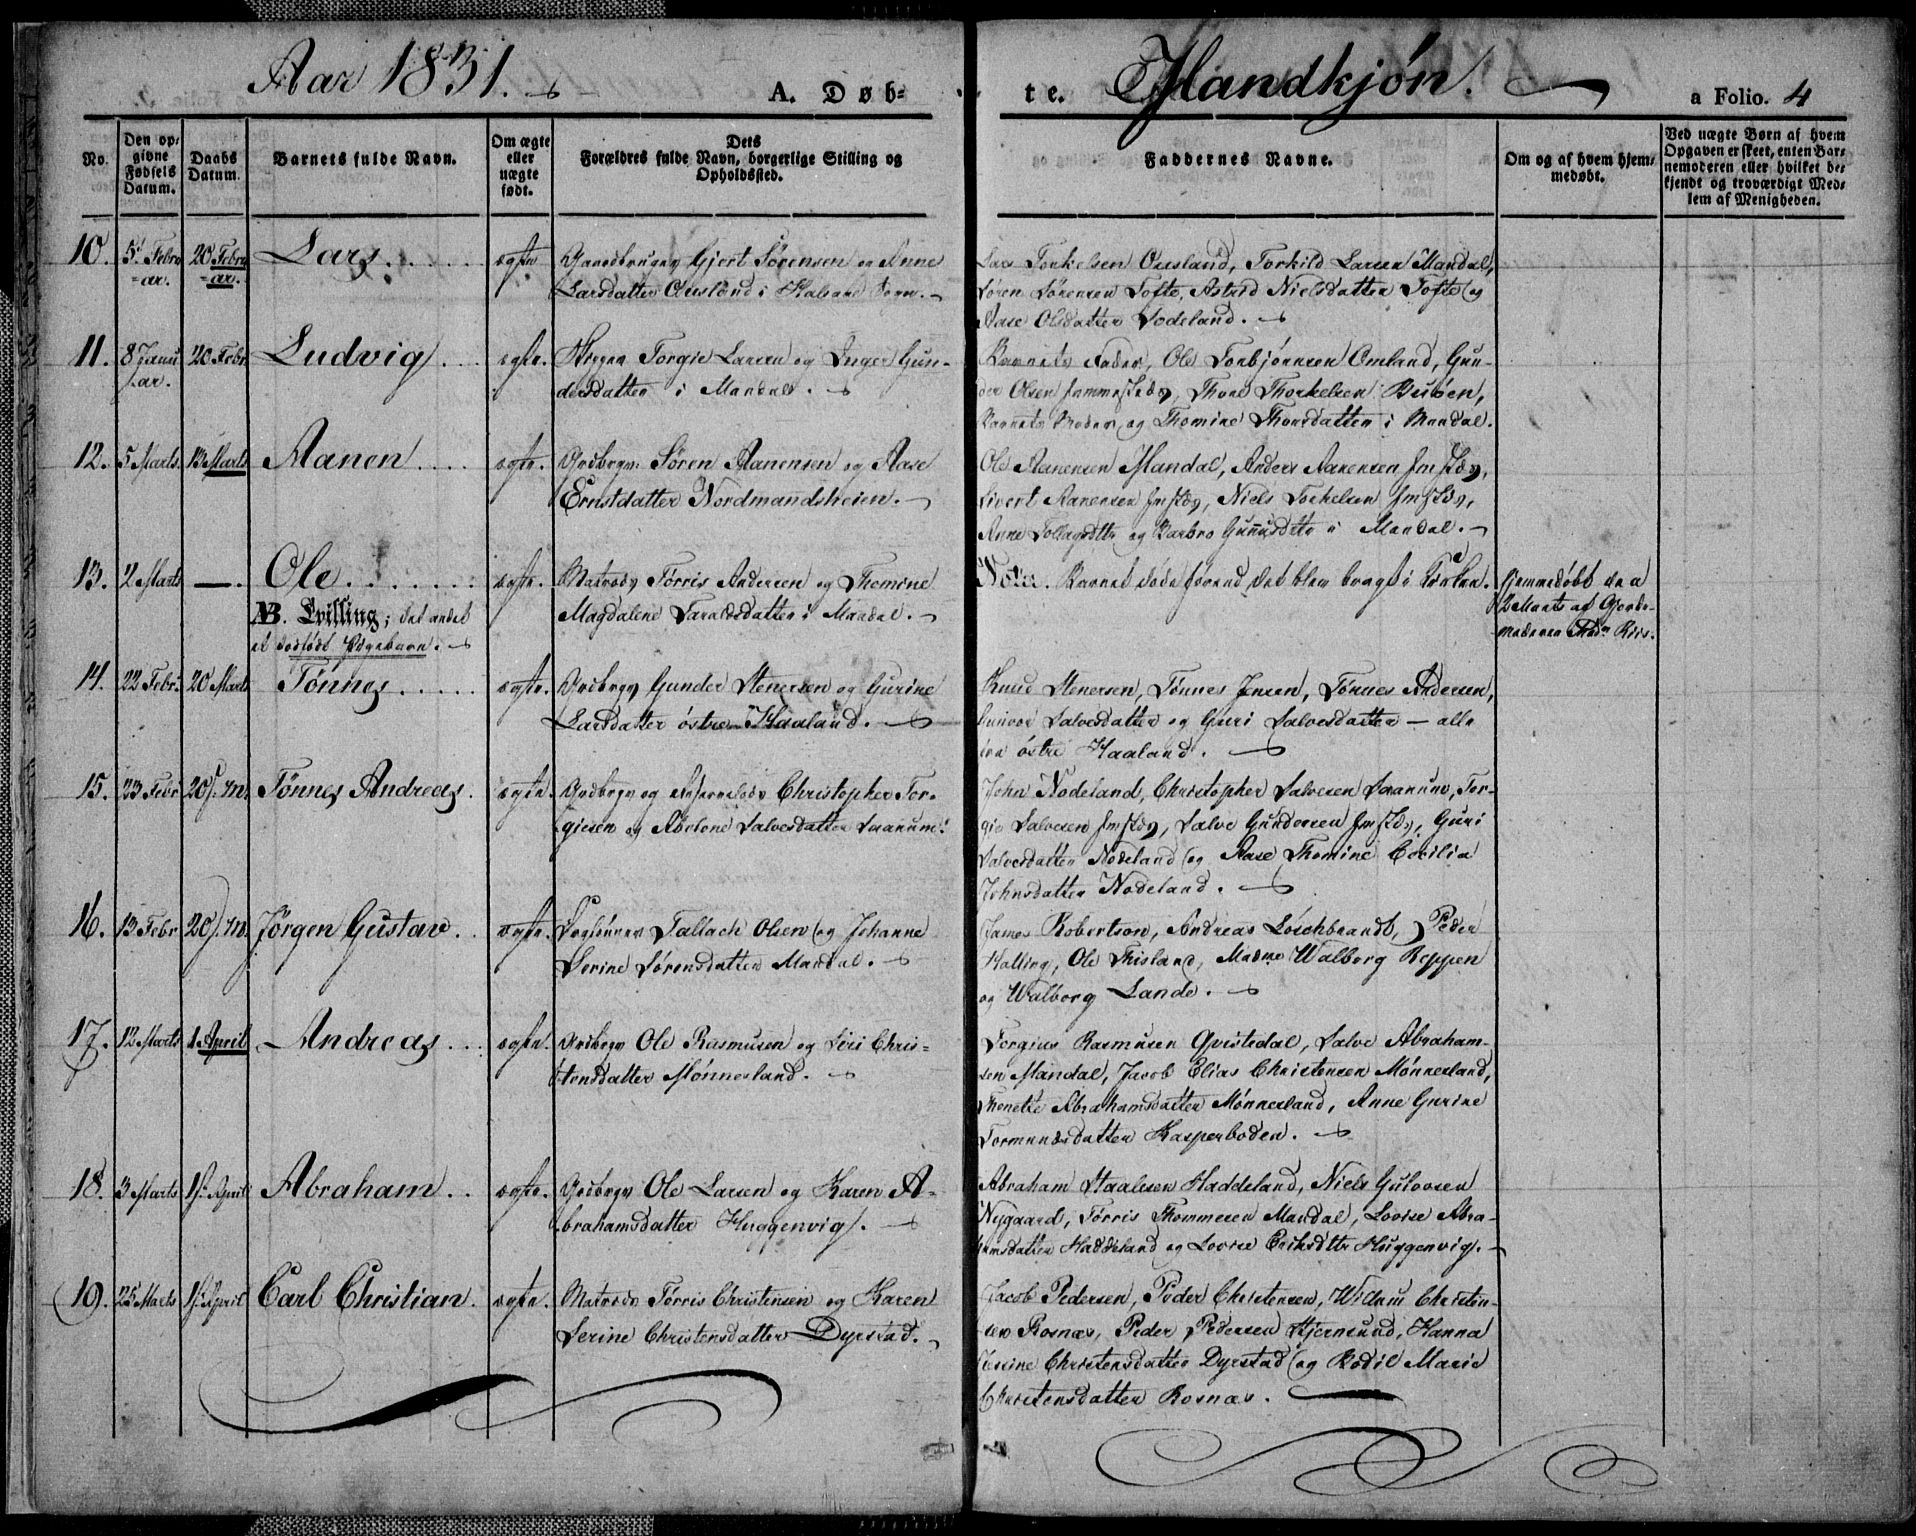 Aar 1831.
A. Døb-
te. Mandkjön.
a Folio. 4
No.
Den op-
givne
Fødsels
Datum.
Daabs
Datum.
Barnets fulde Navn.
Om ægte
eller
uægte
født.
Dets
Forældres fulde Navn, borgerlige Stilling og
Opholdssted.
Faddernes Navne.
Om og af hvem hjem-
medøbt.
Ved uægte Børn af hvem
Opgaven er skeet, enten Bar-
nemoderen eller hvilket be-
kjendt og troværdigt Med-
lem af Menigheden.
10. 5 Febru 20 Febru Lars ægte Gaardbruger Gjert Sörensen og Anne
-ar. -ar. Larsdatter Ousland i Halsaae Sogn.
Lars Torkelsen Ousland, Torkild Larsen Mandal,
Sören Sörensen Tofte, Astrid Nielsdatter Tofte og
Aase Olsdatter Sodeland.
11. 8 Janu 20 Febr Ludvig ægte. Torgie Larsen og Inger Gun-
ar. dersdatter i Mandal.
Barnets Fader, Ole Torbjörnsen Omland, Gun-
der Olsen sammesteds, Thore Thorkelsen Busöen,
Barnets Moder og Thomine Thorsdatter i Mandal.
12. 5 Marts 13 Marts Aanen ægte. Grdbrgr Sören Aanensen og Aase
Ernstdatter Nordmandsheien.
Ole Aanensen Mandal, Anders Aanensen smstds,
Sivert Aanensen smstds, Niels Torkelsen smstds,
Anne Tollagsdttr og Barbro Gunusdttr i Mandal.
13. 2 Marts — Ole ægte. Matrods Törris Andersen og Thomine
NB. Tvilling; det andet Magdalene Taraldsdatter i Mandal.
et dødfödt Pigebarn.
Nota. Barnet döde förend det blev bragt i Kirken.
Hjemmedöbt den
2 Marts af Gjorde-
moderen Mad. Riis.
14. 22 Febr. 20 Marts Tönnes ægte. Grdbrgr Gunder Stenersen og Gurine
Larsdatter östre Haaland.
Knud Stenersen, Tönnes Jensen, Tönnes Andersen,
Gunvor Salvesdatter og Guri Salvesdatter — alle
fra östre Haaland.
15. 23 Febr 20 M. Tönnes Andreas. ægte Grdbrgr og Christopher Tor-
giesen og Abelone Salvesdatter Saanum.
John Nodeland, Christopher Salvesen Saanum, Tor-
gie Salvesen smstds, Salve Gundersen smstds, Guri
Salvesdatter Nodeland og Aase Thomine Cecilia
Johnsdatter Nodeland.
16. 13 Febr 20 M. Jörgen Gustav. ægte. Tallach Olsen og Johanne
Serine Sörensdatter Mandal.
James Robertson, Andreas Löschbrandt, Peder
Halling, Ole Thisland, Madme Walborg Reppen
og Walborg Lande.
17. 12 Marts 1 April Andreas ægte. Grdbrgr Ole Rasmusen og Siri Chris-
tensdatter Mönnesland.
Torgius Rasmusen Qvistedal, Salve Abraham-
sen Mandal, Jacob Elias Christensen Mönnesland,
Thenette Abrahamsdatter Mönnesland, Anne Gurine
Tormundsdatter Kasperboden.
18. 3 Marts 1 April Abraham ægte. Grdbrgr Ole Larsen og Karen A-
brahamsdatter Huggenvig.
Abraham Staalesen Haddeland, Niels Gulovsen
Nygaard, Törris Thommesen Mandal, Lovise Abra-
hamsdatter Haddeland og Lovise Eriksdttr Huggenvig.
19. 25 Marts 1 April Carl Christian. ægte. Matrods Törris Christensen og Karen
Serine Christensdatter Dyrstad.
Jacob Pedersen, Peder Christensen, Willum Christen-
sen Rosnæs, Peder Pedersen Hjernsund, Hanna
Serine Christensdatter Dyrstad og Bodil Marie
Christensdatter Rosnæs.